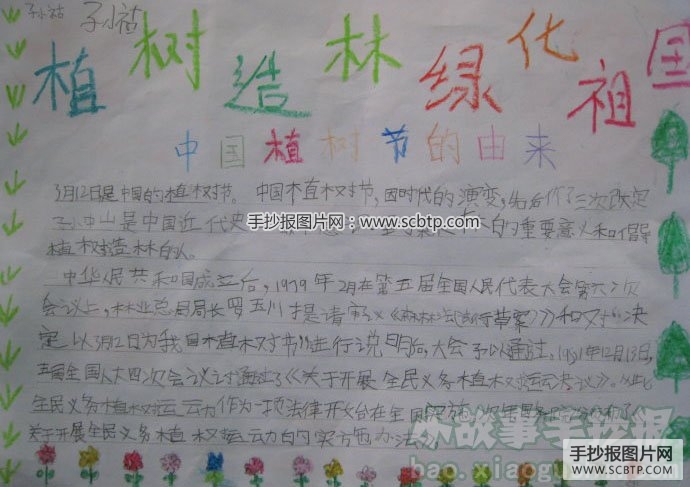 子小祜 子小祜
植树造林绿化祖国
中国植树节的由来
3月12日是中国的植树节。中国植树节,因时代的演变,先后作了三次改定
孙中山是中国近代史上 的重要意义和倡导
植树造林的人。
中华人民共和国成立后,1979年2月在第五届全国人民代表大会第六次
会议上,林业总局局长罗玉川提请审议《森林法试行草案》》和对"决
定以3月12日为我国植树节"进行说明后,大会予以通过。1981年12月13日,
五届全国人大四次会议讨论通过了《关于开展全民义务植树运动决议》。从此
全民义务植树运动作为一项法律开始在全国实施
关于开展全民义务植树运动的实施办法
手抄报图片网:www.scbtp.com
故事手抄报
bao.xiaogu
手抄报图片网
WWW.SCBTP.COM